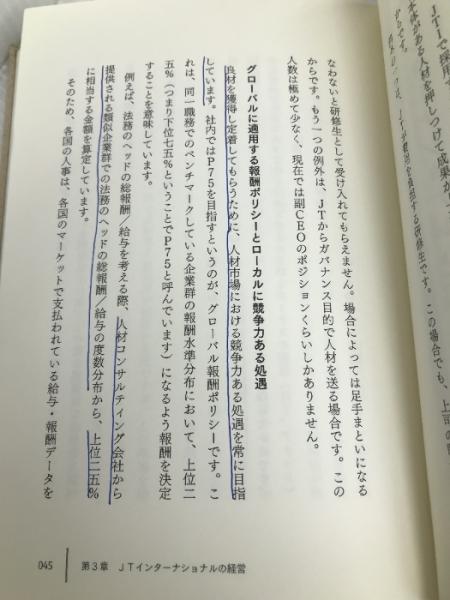 JTIで採用
体がある人材を押しつけて成果が
なわないと研修生として受け入れてもらえません。場合によっては足手まといになる
からです。もう一つの例外は、JTからガバナンス目的で人材を送る場合です。この
人数は極めて少なく、現在では副CEOのポジションくらいしかありません。
グローバルに適用する報酬ポリシーとローカルに競争力ある処遇
良材を獲得し定着してもらうために、人材市場における競争力ある処遇を常に目指
しています。社内ではP75を目指すというのが、グローバル報酬ポリシーです。こ
れは、同一職務でのベンチマークしている企業群の報酬水準分布において、上位二
五%(つまり下位七五%ということでP75と呼んでいます)になるよう報酬を決定
することを意味しています。
例えば、法務のヘッドの総報酬/給与を考える際、人材コンサルティング会社から
提供される類似企業群での法務のヘッドの総報酬/給与の度数分布から、上位二五%
に相当する金額を算定しています。
そのため、各国の人事は、各国のマーケットで支払われている給与・報酬データを
045
第3章 JTインターナショナルの経営